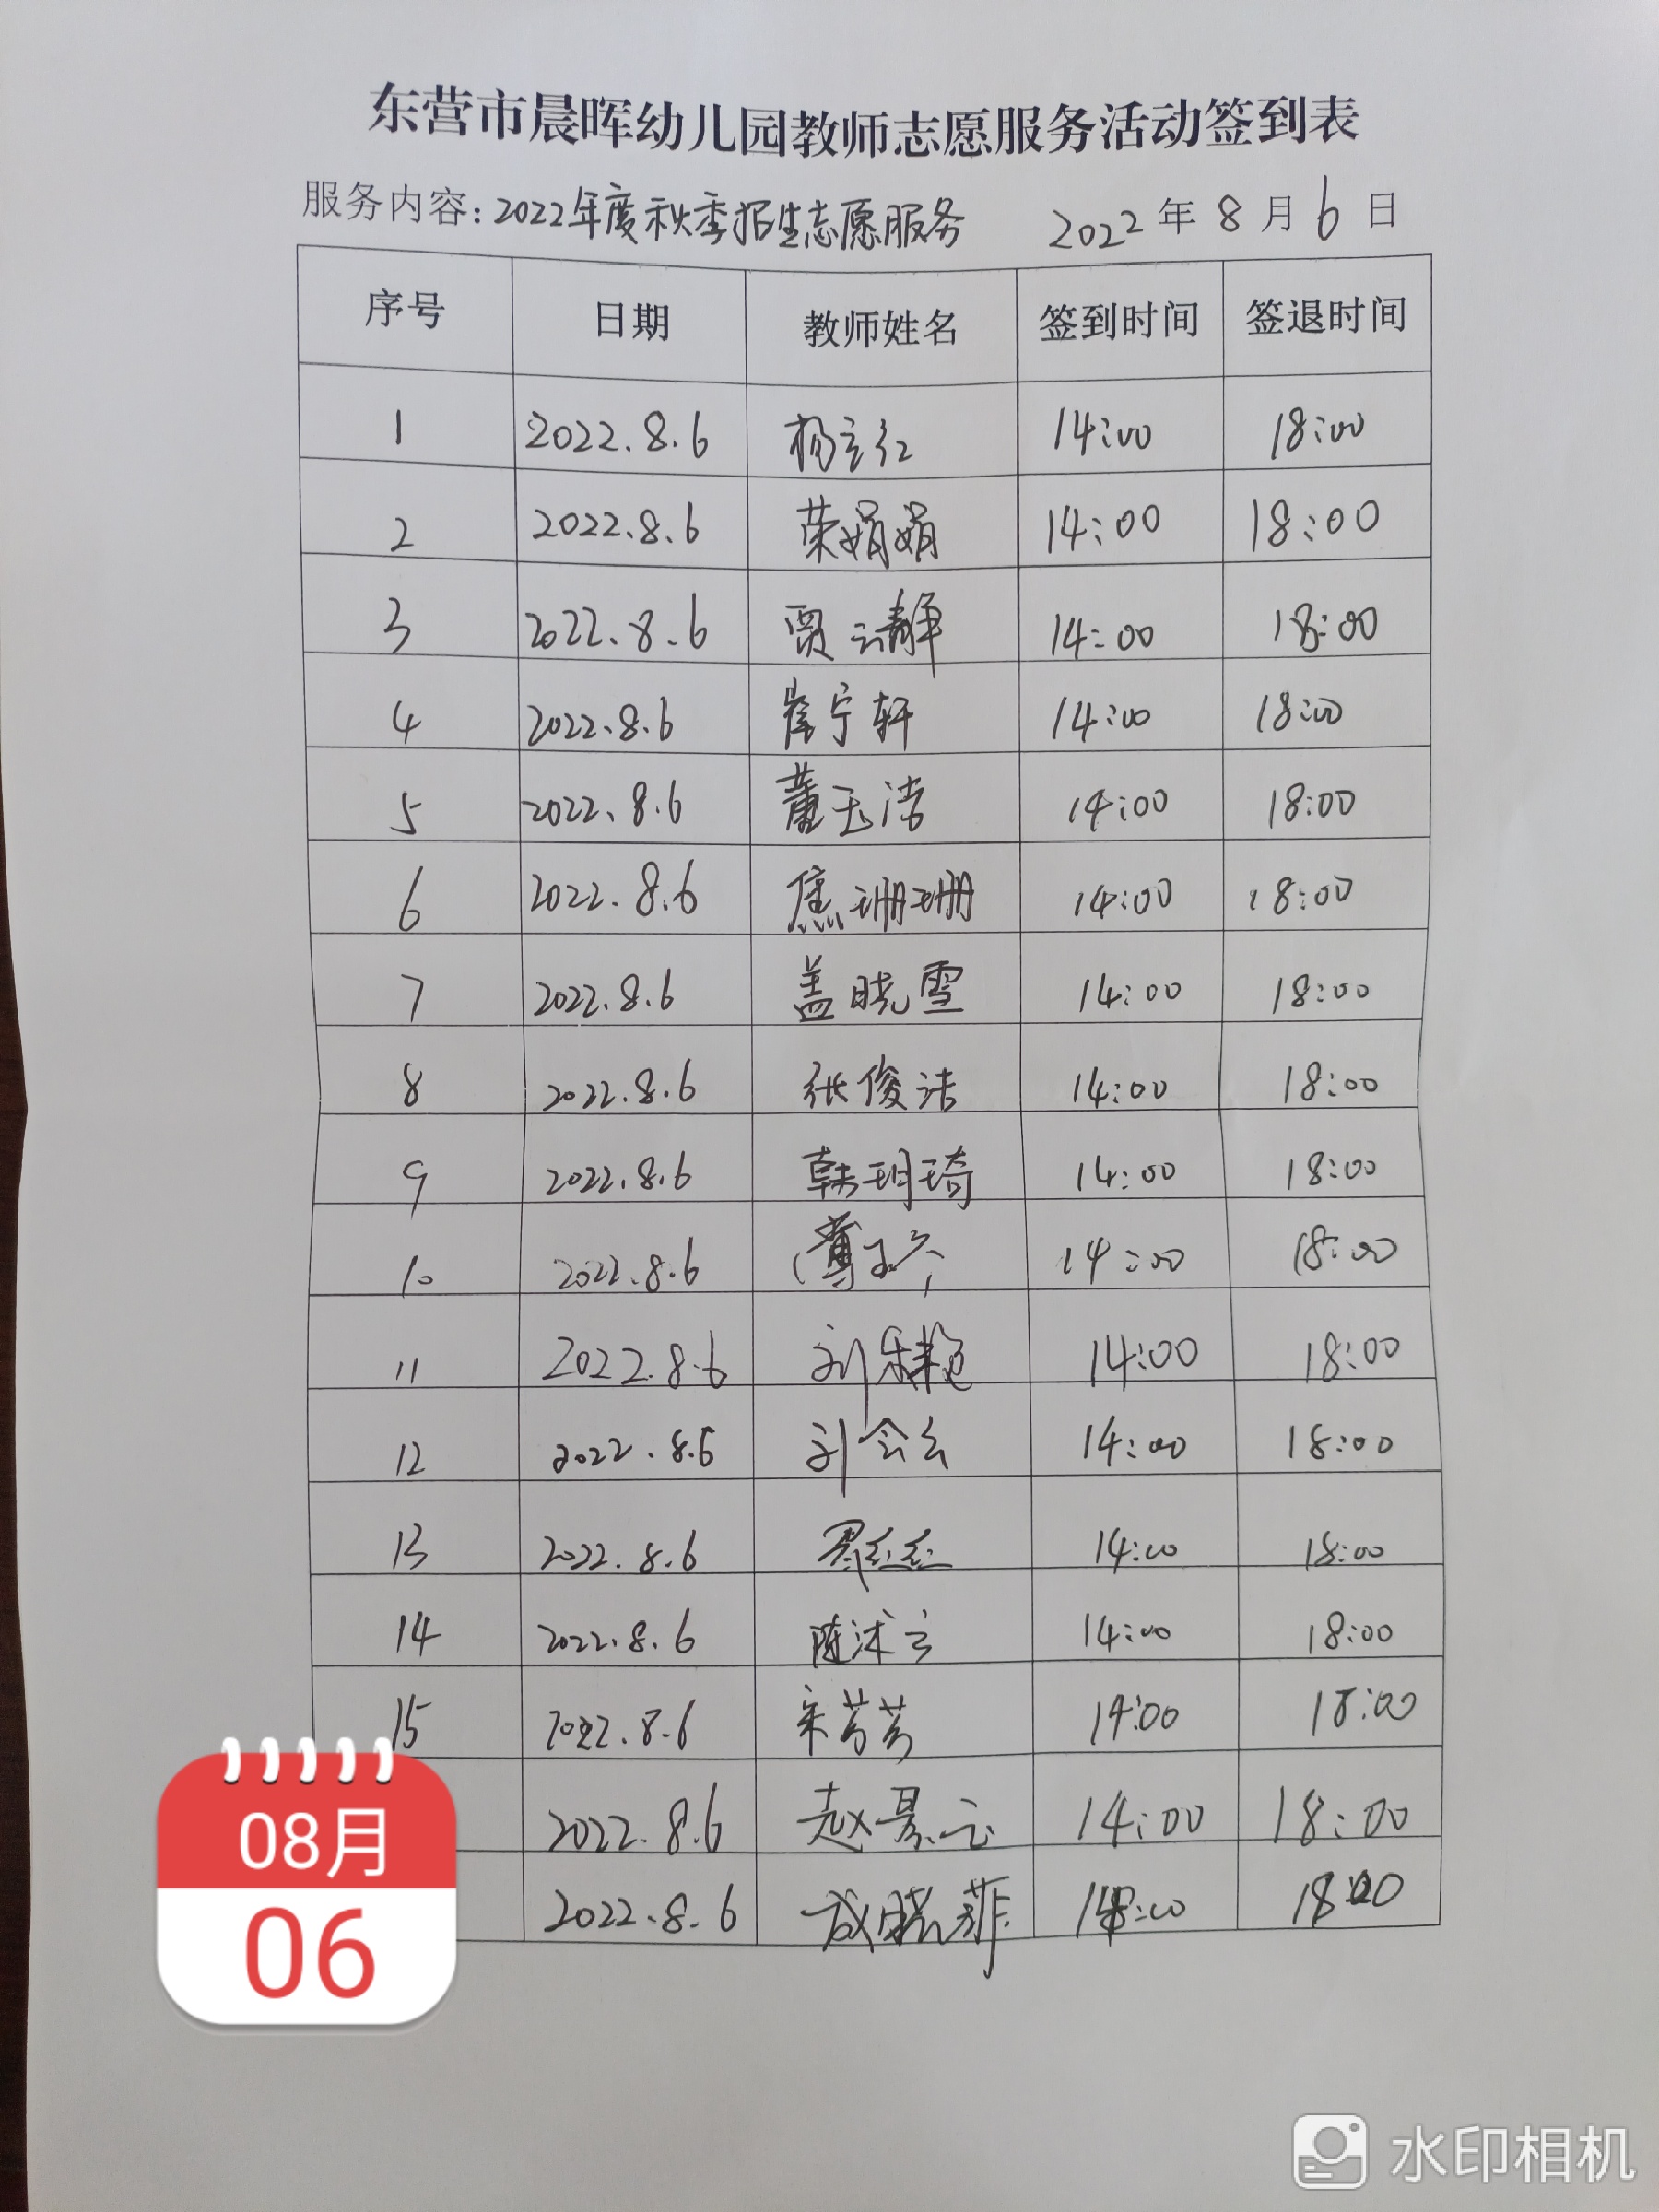 东营市晨晖幼儿园教师志愿服务活动签到表
服务内容：2022年度秋季招生志愿服务 2022年8月6日
序号 日期 教师姓名 签到时间 签退时间
1 2022.8.6 杨立红 14:00 18:00
2 2022.8.6 荣娟娟 14:00 18:00
3 2022.8.6 贾云静 14:00 18:00
4 2022.8.6 崔宁轩 14:00 18:00
5 2022.8.6 董玉洁 14:00 18:00
6 2022.8.6 焦珊珊 14:00 18:00
7 2022.8.6 盖晓雪 14:00 18:00
8 2022.8.6 张俊洁 14:00 18:00
9 2022.8.6 韩玥琦 14:00 18:00
10 2022.8.6 14:00 18:00
11 2022.8.6 14:00 18:00
12 2022.8.6 刘会云 14:00 18:00
13 2022.8.6 14:00 18:00
14 2022.8.6 陈沭云 14:00 18:00
15 2022.8.6 宋芳芳 14:00 18:00
2022.8.6 赵景云 14:00 18:00
2022.8.6 成晓菲 14:00 18:00
08月
06
水印相机